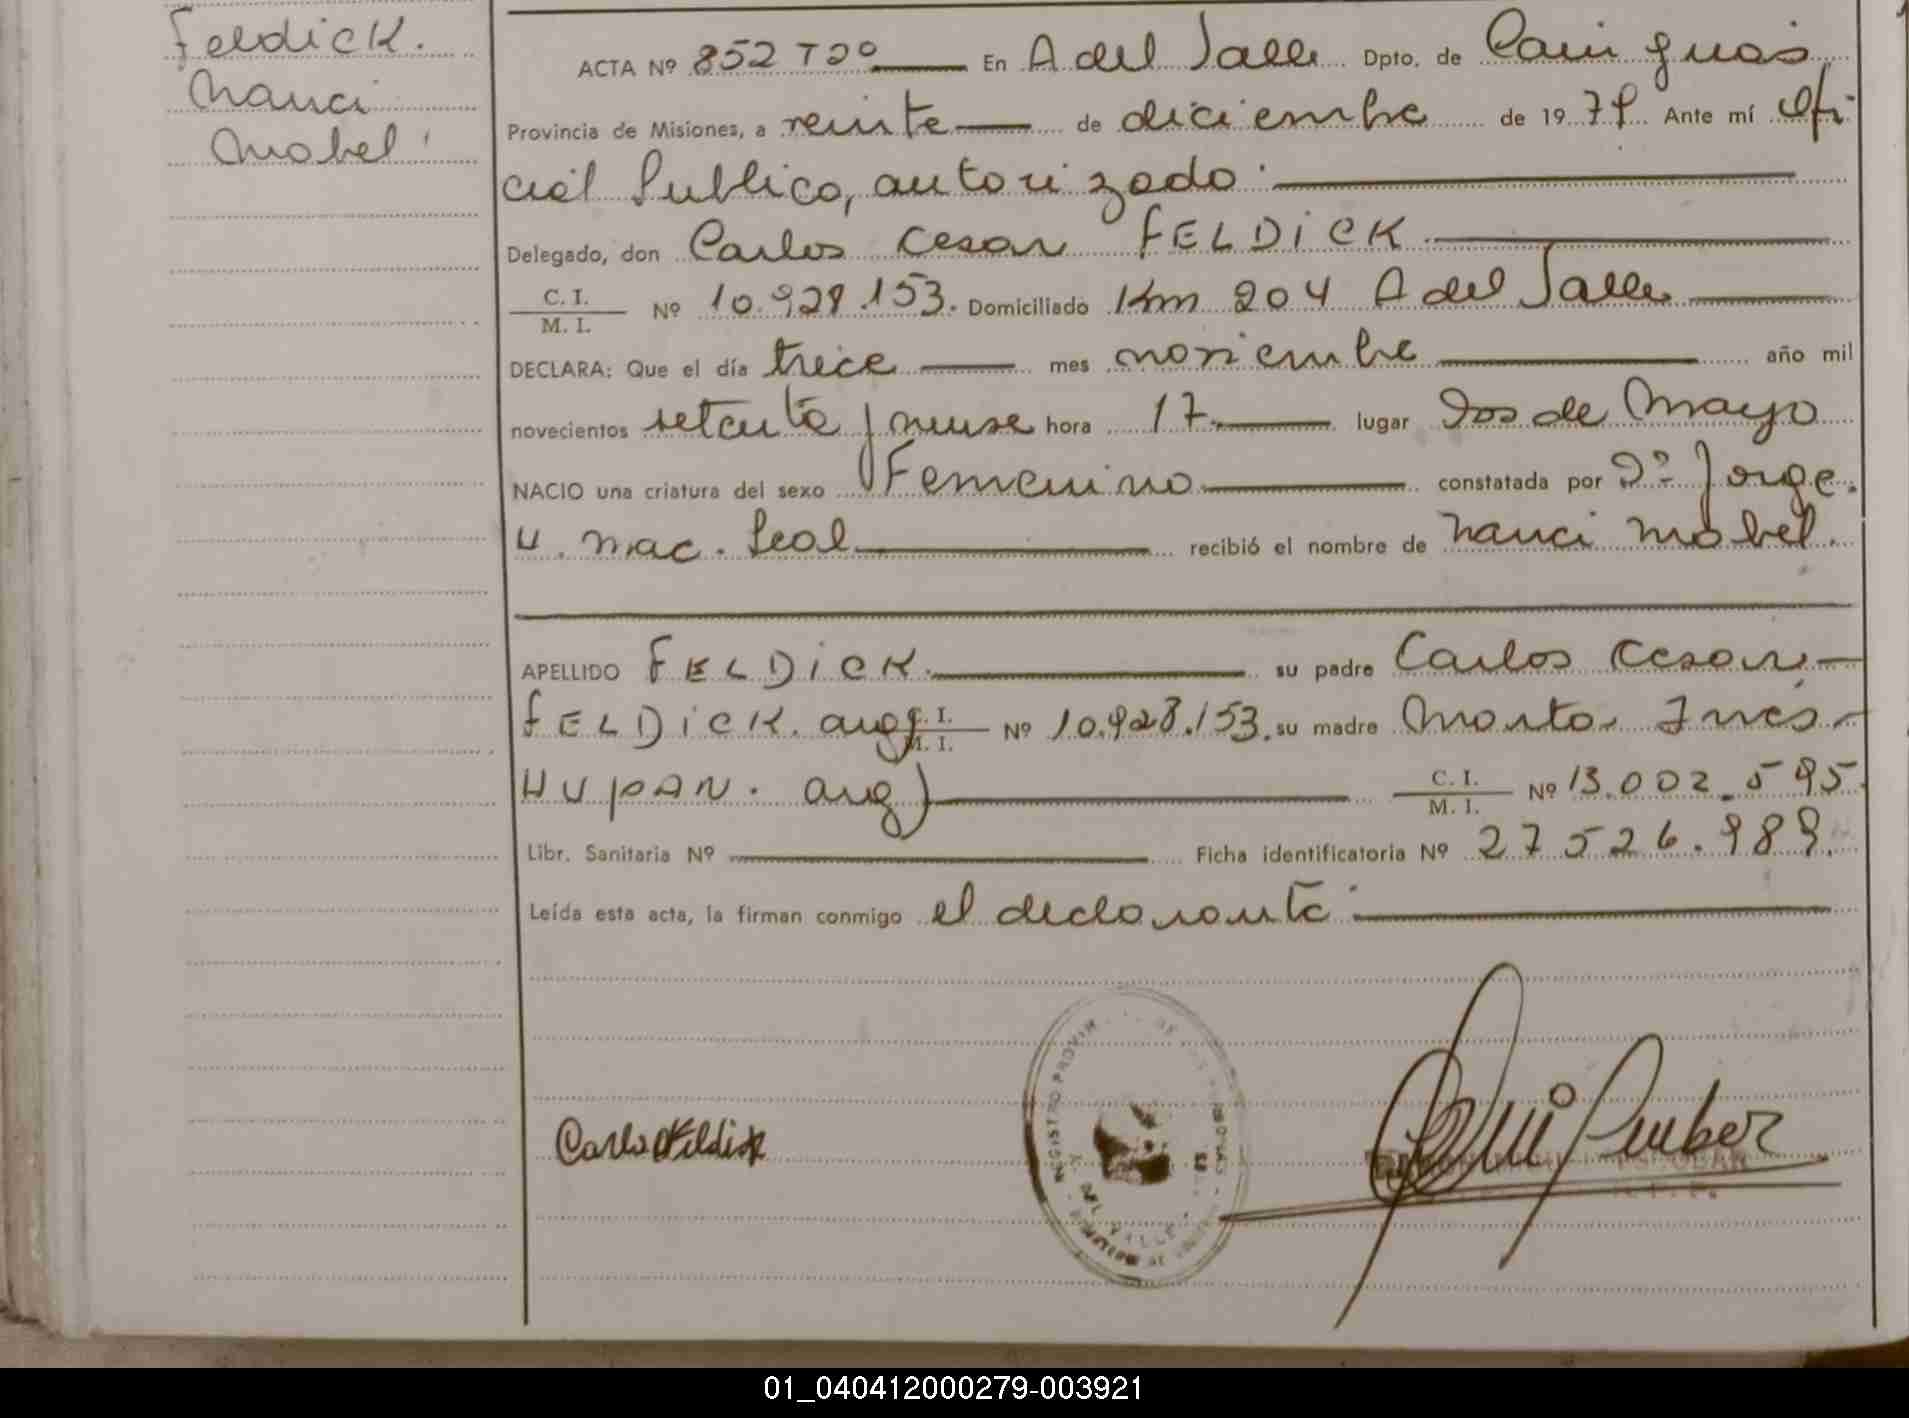 Feldick.
Nanci
Mabel
ACTA Nº 852 T2º En A del Valle Dpto. de Cainguas
Provincia de Misiones, a veinte de diciembre de 1979 Ante mí Ofi-
cial Publico, autorizado
Delegado, don Carlos Cesar FELDiCK
C. I.
M. I. Nº 10.928.153. Domiciliado Km 204 A del Valle
DECLARA: Que el día trece mes noviembre año mil
novecientos setenta y nueve hora 17 lugar Dos de Mayo
NACIO una criatura del sexo Femenino constatada por Dº Jorge
U. Mac. Leal recibió el nombre de Nanci Mabel.
APELLIDO FELDiCK su padre Carlos Cesar
FELDiCK. arg) C. I.
M. I. Nº 10.928.153. su madre Marta Inés
HUPAN. arg) C. I.
M. I. Nº 13.002.595.
Libr. Sanitaria Nº Ficha identificatoria Nº 27526.989.
Leída esta acta, la firman conmigo el declarante
Carlos Feldick
REGISTRO PROVIN
DEL VALLE
01_040412000279-003921